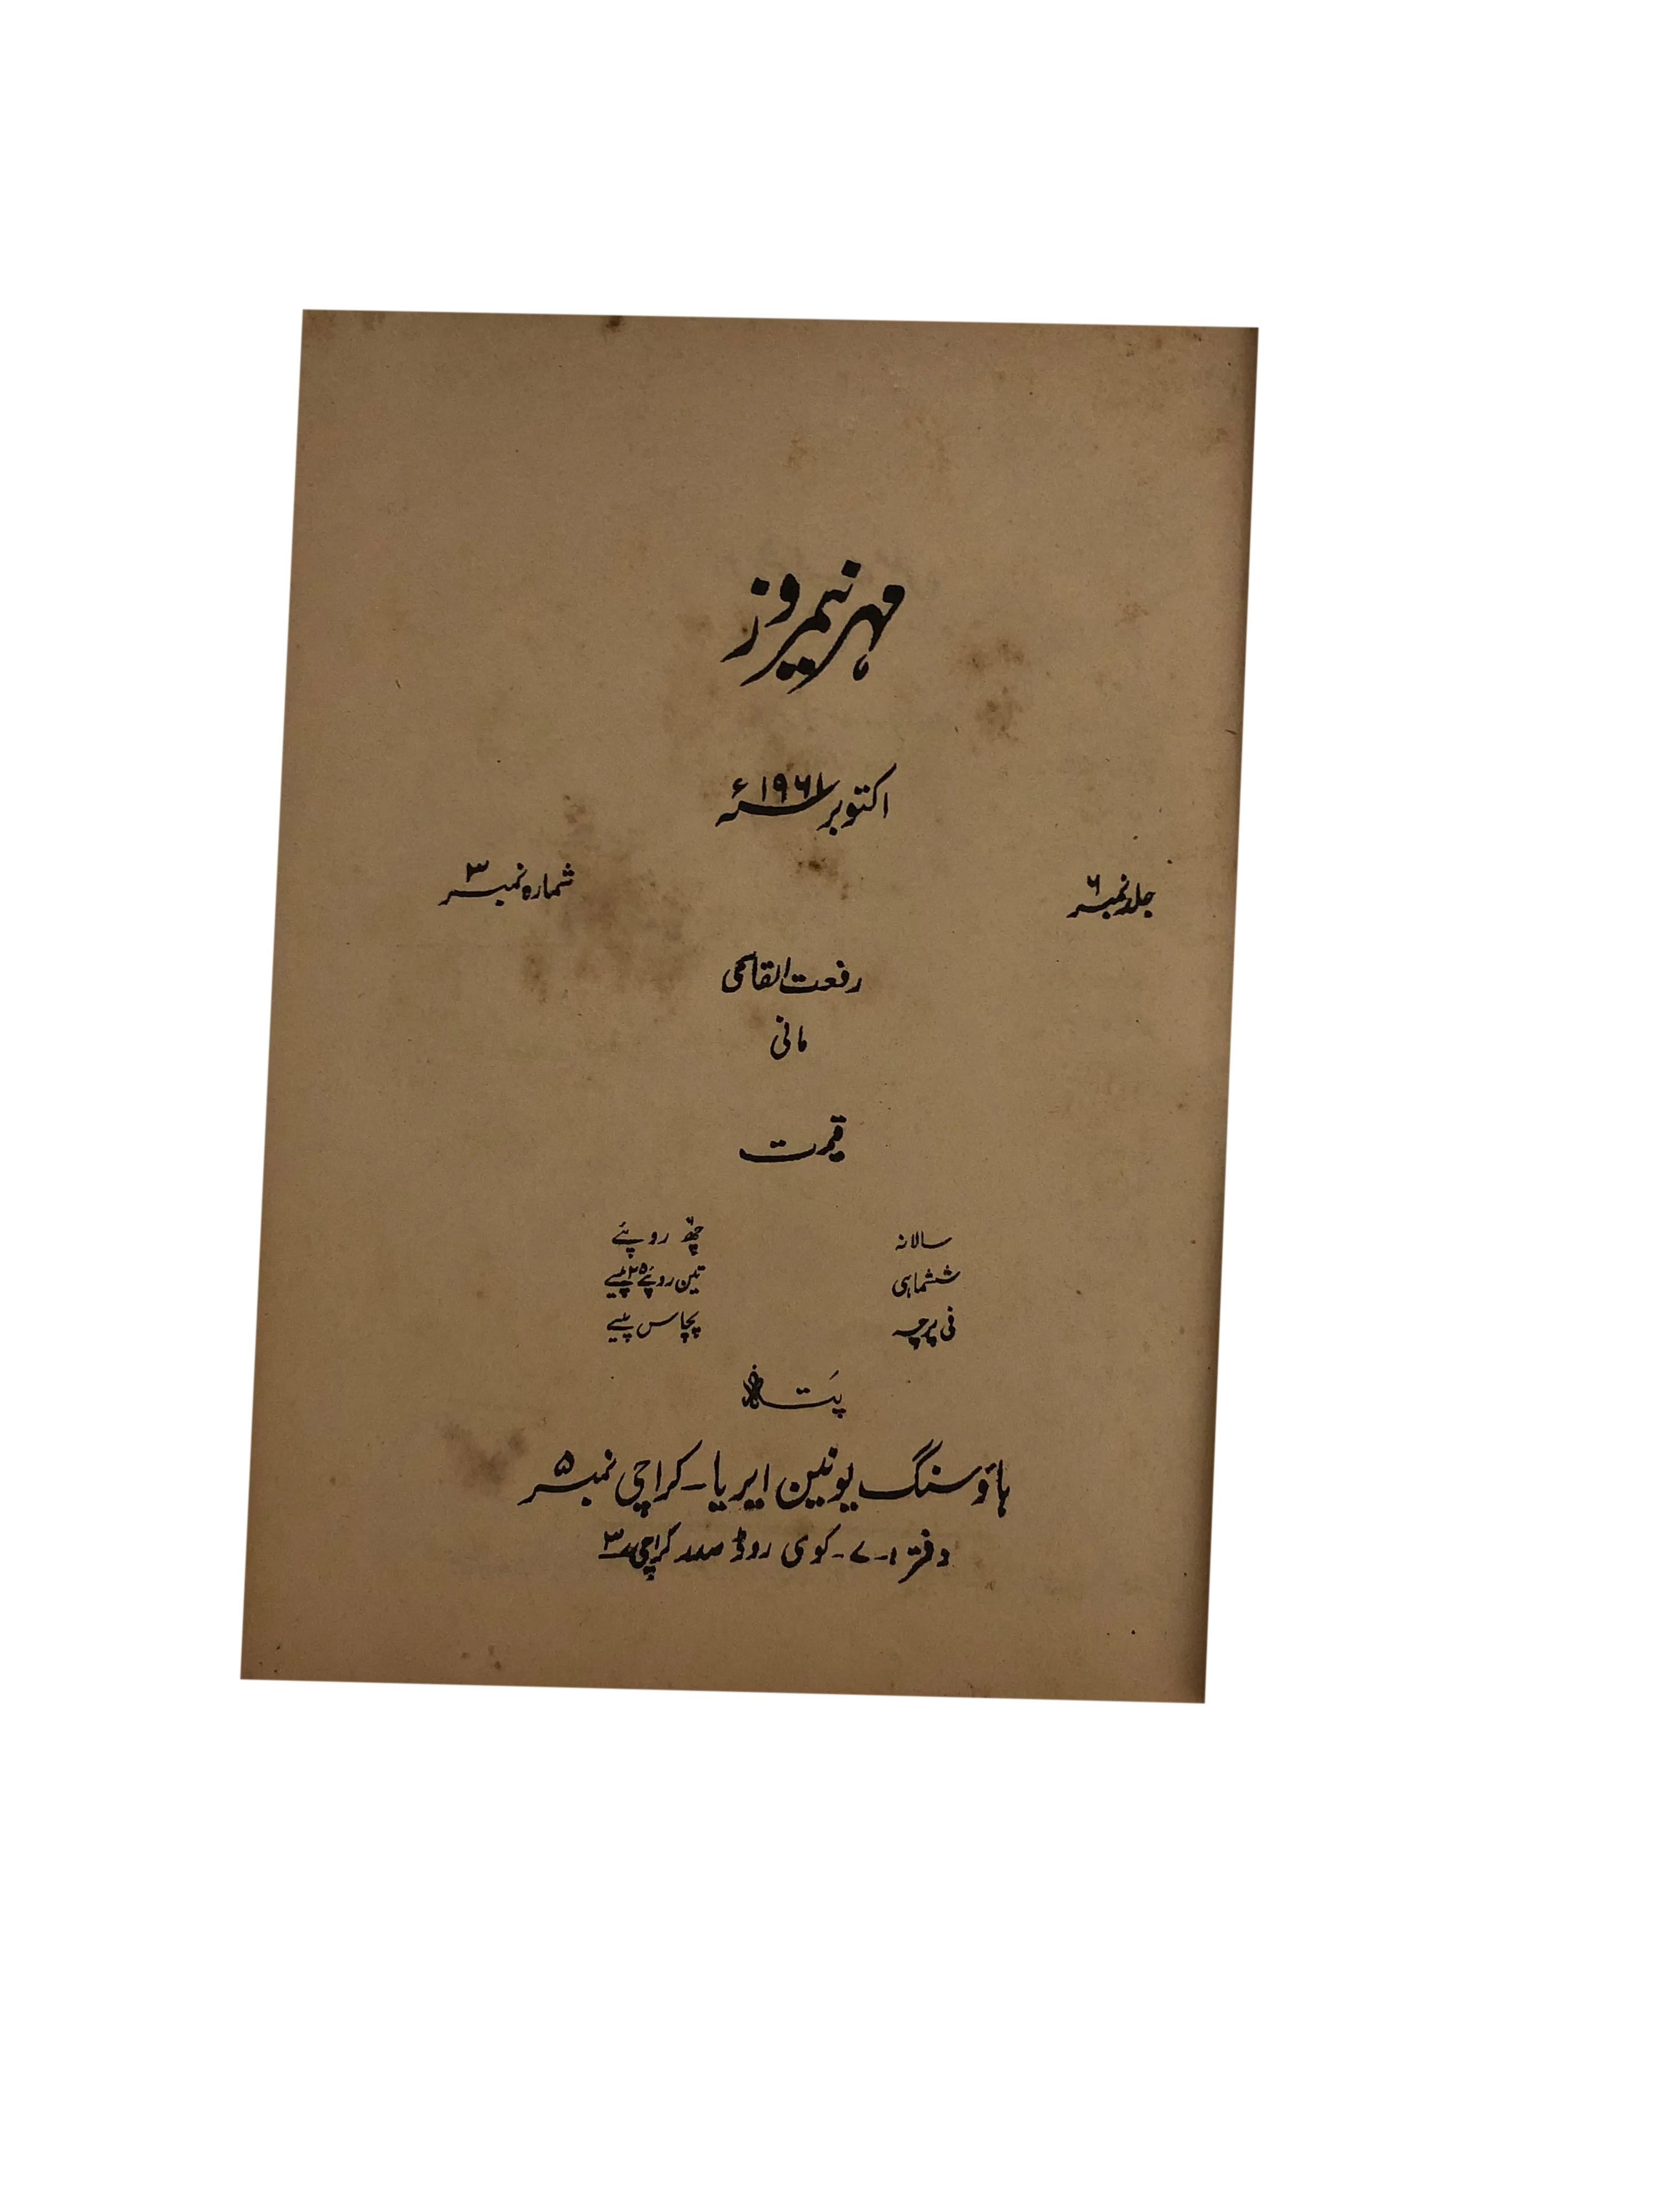 مہر نیمروز
اکتوبر ۱۹۶۱ء
جلد نمبر ۶ شمارہ نمبر ۳
رفعت القاسمی
مانی
قیمت
سالانہ چھ روپئے
ششماہی تین روپئے ۲۵ پیسے
فی پرچہ پچاس پیسے
پتہ
ہاؤسنگ یونین ایریا - کراچی نمبر ۵
دفتر ۱-۷- کوی روڈ صدر کراچی ۳